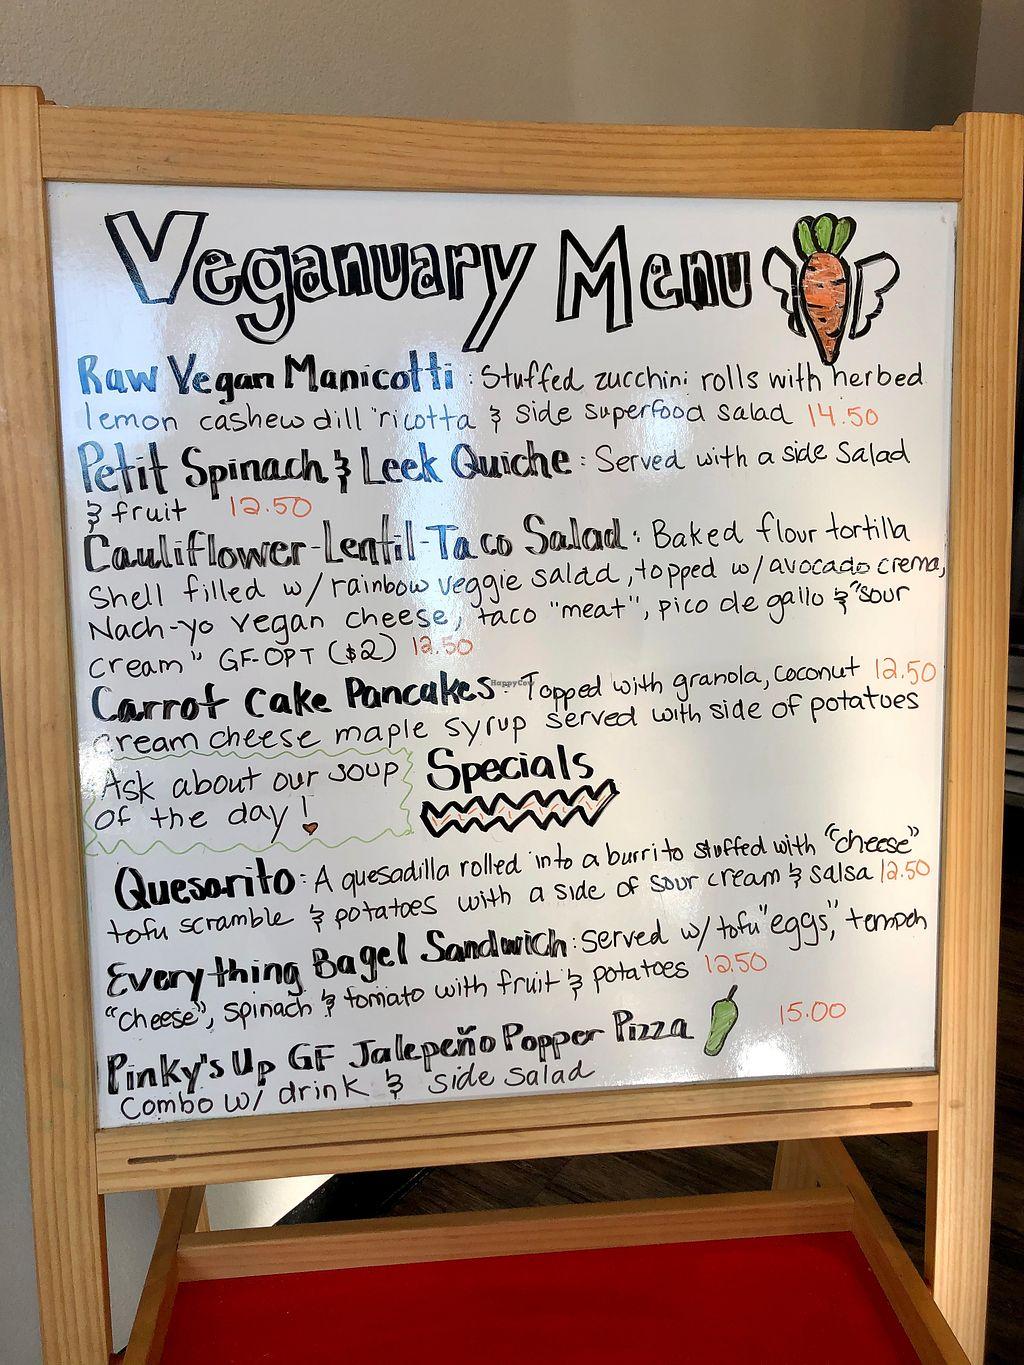 Veganuary Menu
Raw Vegan Manicotti : Stuffed zucchini rolls with herbed
lemon cashew dill "ricotta & side superfood salad 14.50
Petit Spinach & Leek Quiche : Served with a side Salad
& fruit 12.50
Cauliflower-Lentil-Taco Salad : Baked flour tortilla
Shell filled w/ rainbow veggie salad, topped w/ avocado crema,
Nach-yo vegan cheese, taco "meat", pico de gallo & "sour
cream" GF-OPT ($2) 12.50
HappyCow
Carrot Cake Pancakes : Topped with granola, coconut 12.50
cream cheese maple syrup served with side of potatoes
Ask about our soup
of the day!
Specials
Quesorito : A quesadilla rolled into a burrito stuffed with "cheese"
tofu scramble & potatoes with a side of sour cream & salsa 12.50
Everything Bagel Sandwich : served w/ tofu "eggs", tempeh
"cheese", spinach & tomato with fruit & potatoes 12.50
Pinky's Up GF Jalepeño Popper Pizza 15.00
Combo w/ drink & side salad